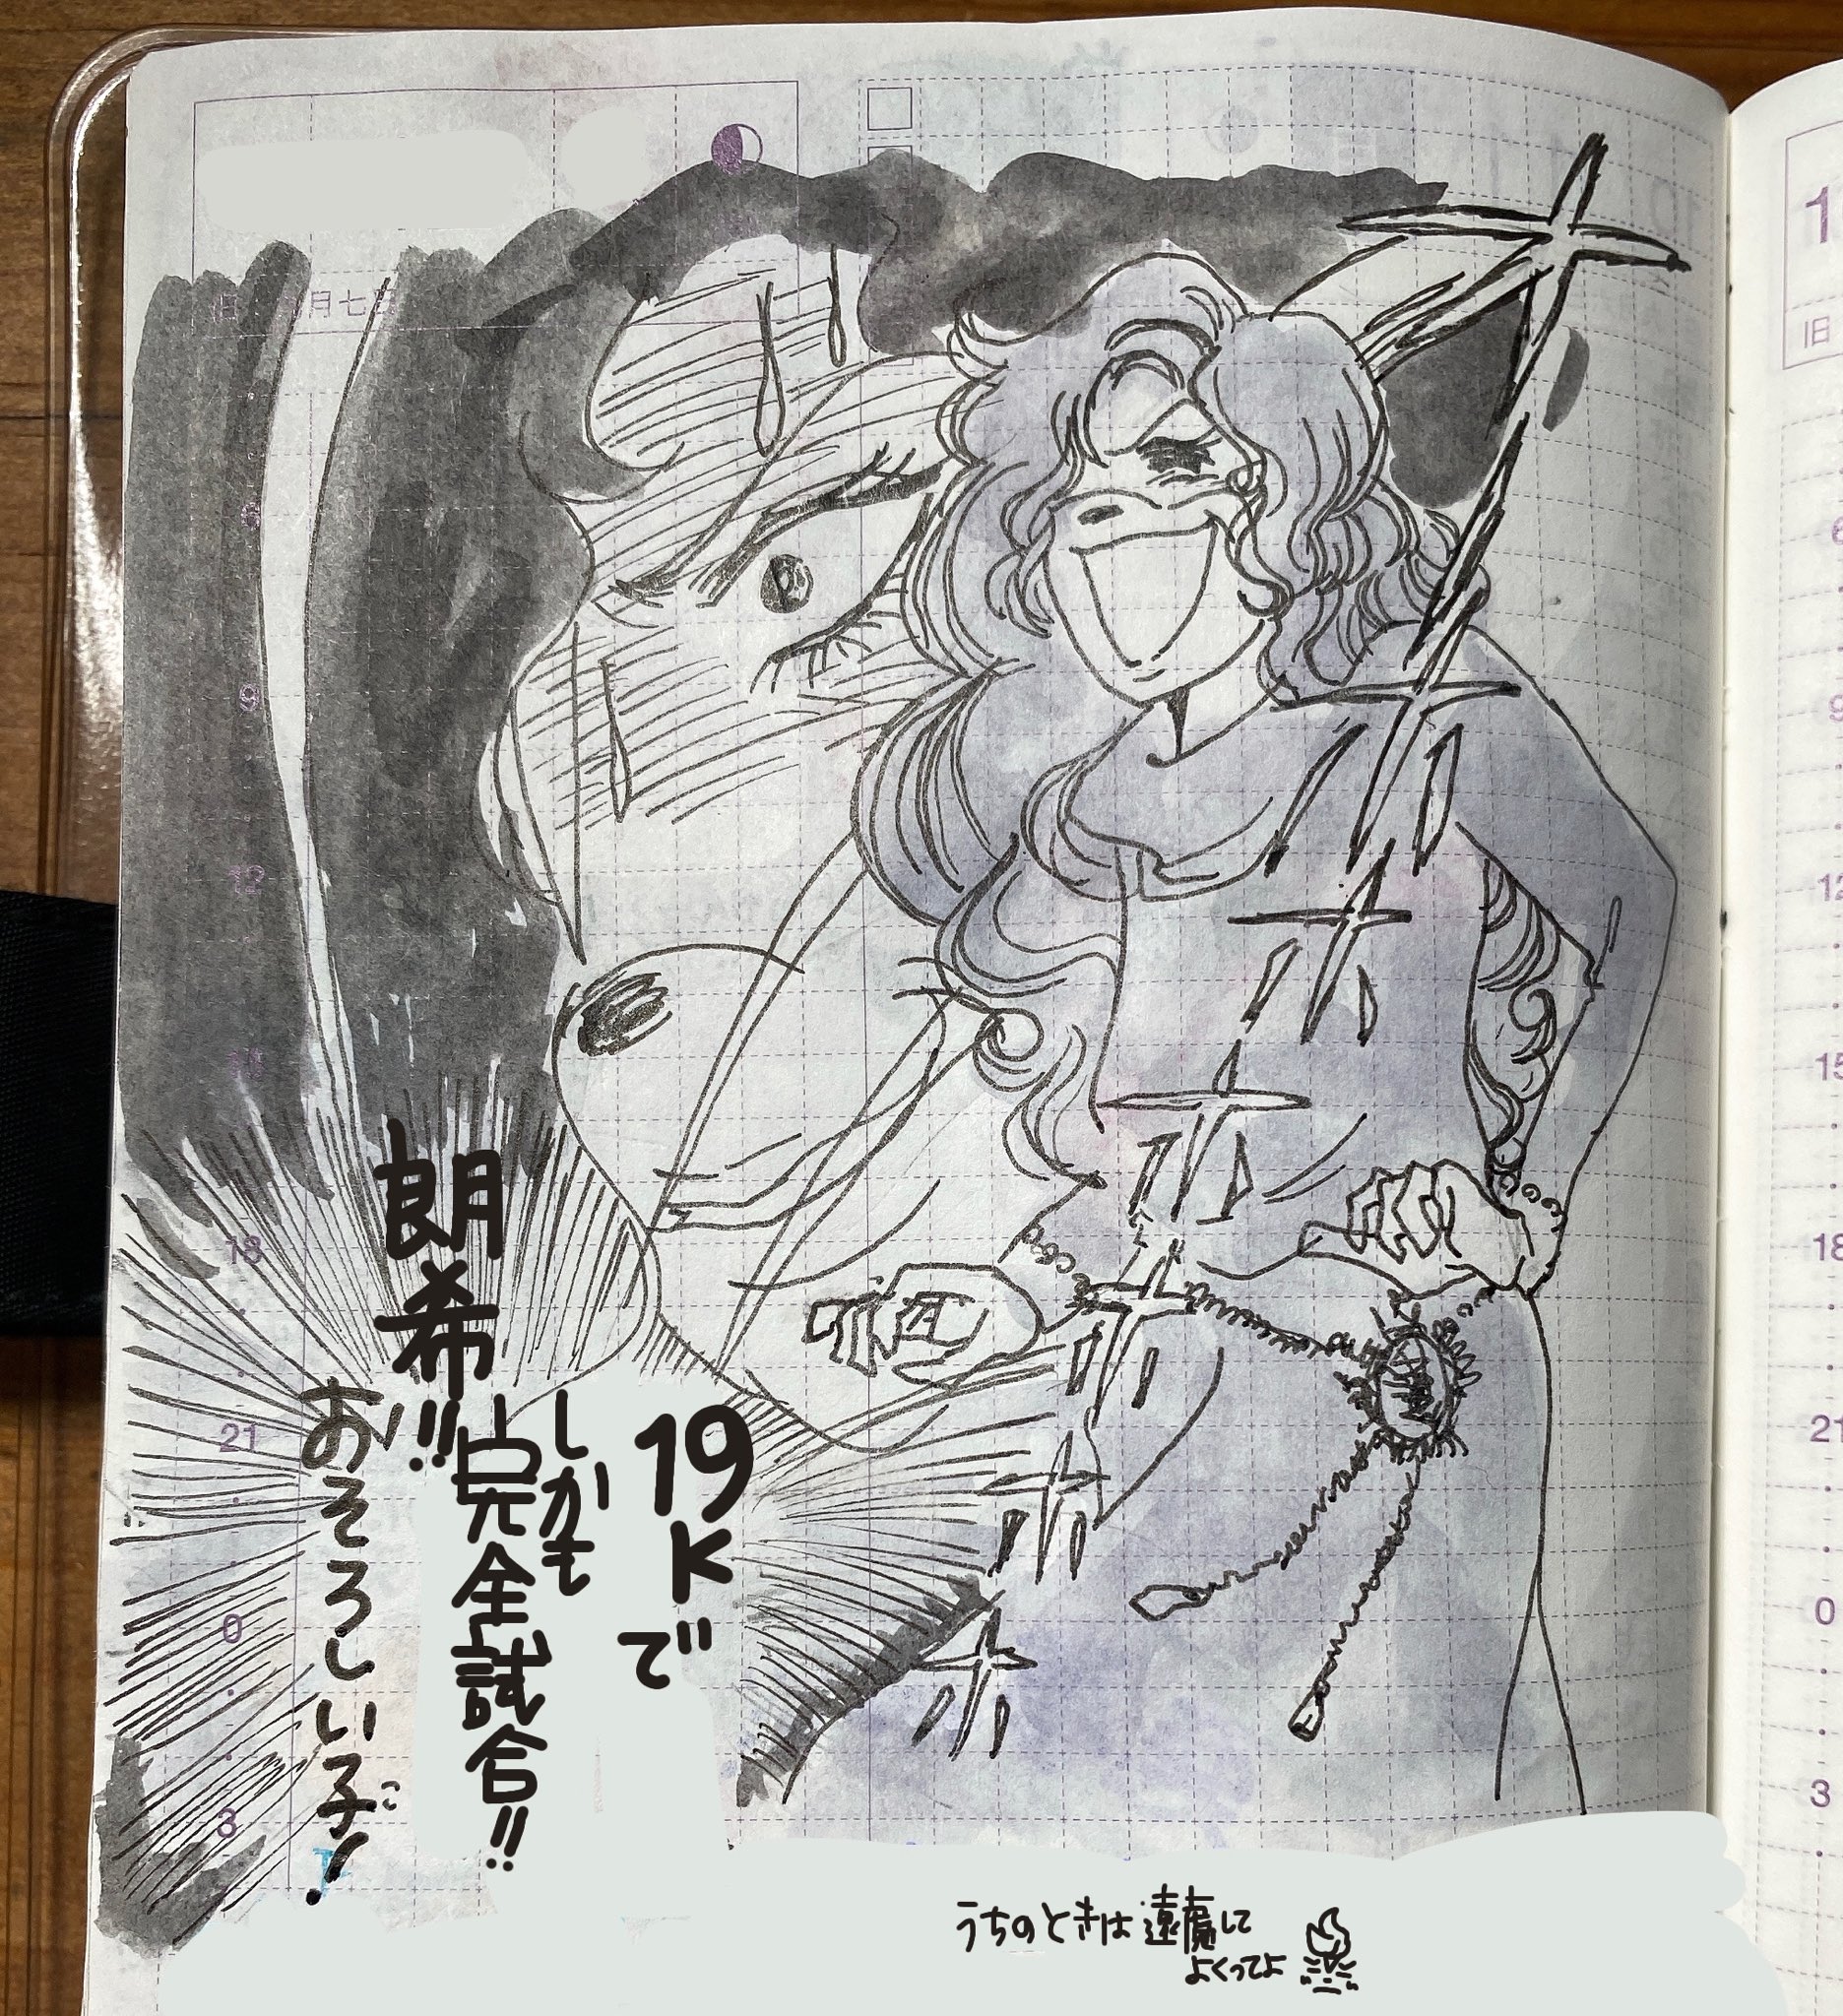 19Kで
しかも
完全試合!!
朗希!!
おそろしい子!
こ
うちのときは遠慮して
よくってよ
月七
6
9
12
18
21
0
3
1
旧
6
9
12
15
18
21
0
3